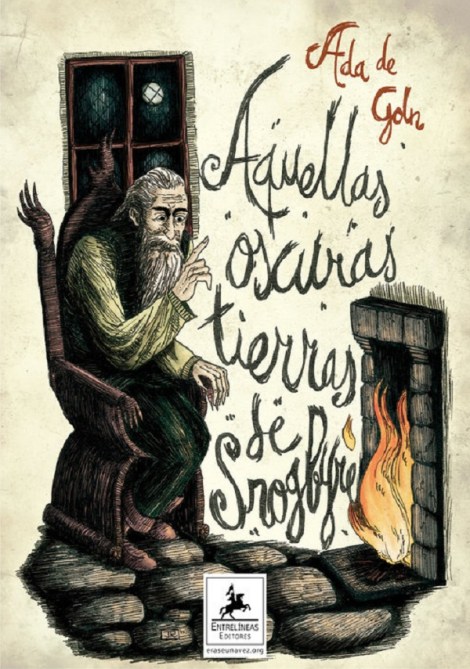 Ada de
Goln
Aquellas
oscuras
tierras
de
Snogbyre
ENTRELÍNEAS
EDITORES
eraseunavez.org